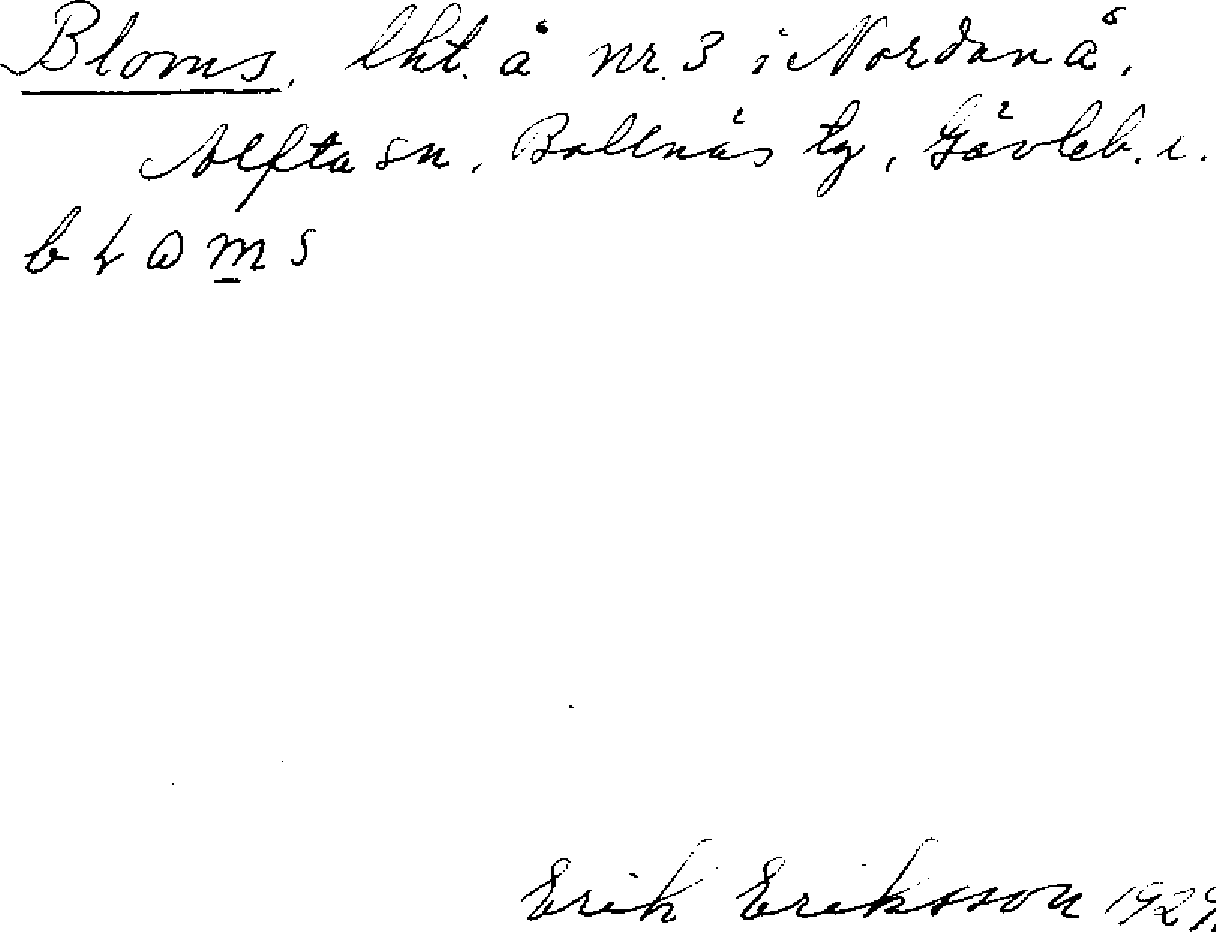 Bloms, lht. å nr. 3 i Nordanå,
Alfta sn, Bollnäs tg, Gävleb. l.
Erik Eriksson